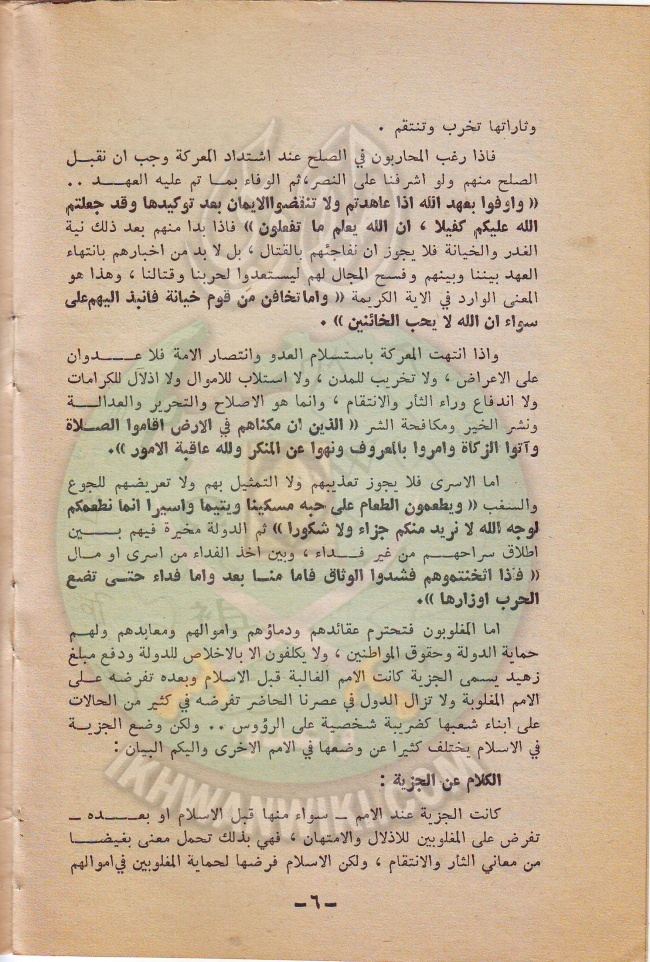 وثاراتها تخرب وتنتقم .
فاذا رغب المحاربون في الصلح عند اشتداد المعركة وجب ان نقبل
الصلح منهم ولو اشرفنا على النصر، ثم الوفاء بما تم عليه العهد ..
« واوفوا بعهد الله اذا عاهدتم ولا تنقضوا الايمان بعد توكيدها وقد جعلتم
الله عليكم كفيلا ، ان الله يعلم ما تفعلون » فاذا بدا منهم بعد ذلك نية
الغدر والخيانة فلا يجوز ان نفاجئهم بالقتال ، بل لا بد من اخبارهم بانتهاء
العهد بيننا وبينهم وفسح المجال لهم ليستعدوا لحربنا وقتالنا ، وهذا هو
المعنى الوارد في الاية الكريمة « واما تخافن من قوم خيانة فانبذ اليهم على
سواء ان الله لا يحب الخائنين » .
واذا انتهت المعركة باستسلام العدو وانتصار الامة فلا عدوان
على الاعراض ، ولا تخريب للمدن ، ولا استلاب للاموال ولا اذلال للكرامات
ولا اندفاع وراء الثأر والانتقام ، وانما هو الاصلاح والتحرير والعدالة
ونشر الخير ومكافحة الشر « الذين ان مكناهم في الارض اقاموا الصلاة
وآتوا الزكاة وامروا بالمعروف ونهوا عن المنكر ولله عاقبة الامور ».
اما الاسرى فلا يجوز تعذيبهم ولا التمثيل بهم ولا تعريضهم للجوع
والسغب « ويطعمون الطعام على حبه مسكينا ويتيما واسيرا انما نطعمكم
لوجه الله لا نريد منكم جزاء ولا شكورا » ثم الدولة مخيرة فيهم بين
اطلاق سراحهم من غير فداء ، وبين اخذ الفداء من اسرى او مال
« فاذا اثخنتموهم فشدوا الوثاق فاما منا بعد واما فداء حتى تضع
الحرب اوزارها ».
اما المغلوبون فتحترم عقائدهم ودماؤهم واموالهم ومعابدهم ولهم
حماية الدولة وحقوق المواطنين ، ولا يكلفون الا بالاخلاص للدولة ودفع مبلغ
زهيد يسمى الجزية كانت الامم الغالبة قبل الاسلام وبعده تفرضه على
الامم المغلوبة ولا تزال الدول في عصرنا الحاضر تفرضه في كثير من الحالات
على ابناء شعبها كضريبة شخصية على الرؤوس .. ولكن وضع الجزية
في الاسلام يختلف كثيرا عن وضعها في الامم الاخرى واليكم البيان :
الكلام عن الجزية :
كانت الجزية عند الامم ــ سواء منها قبل الاسلام او بعده ــ
تفرض على المغلوبين للاذلال والامتهان ، فهي بذلك تحمل معنى بغيضا
من معاني الثأر والانتقام ، ولكن الاسلام فرضها لحماية المغلوبين في اموالهم
-٦-
IKHWANWIKI.COM